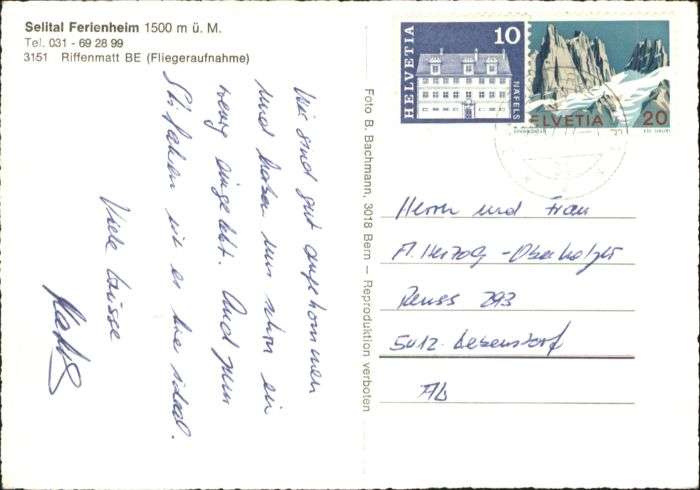 Selital Ferienheim 1500 m ü. M.
Tel. 031 - 69 28 99
3151 Riffenmatt BE (Fliegeraufnahme)
Wir sind gut angekommen
und haben uns schon ein
wenig eingelebt. Und zum
Ski fahren ist es hie ideal.
Viele Grüsse
Foto B. Bachmann, 3018 Bern — Reproduktion verboten
HELVETIA
10
NÄFELS
HELVETIA
20
Herrn und Frau
A. Herzog-Oberholzer
Reuss 293
5412
AG